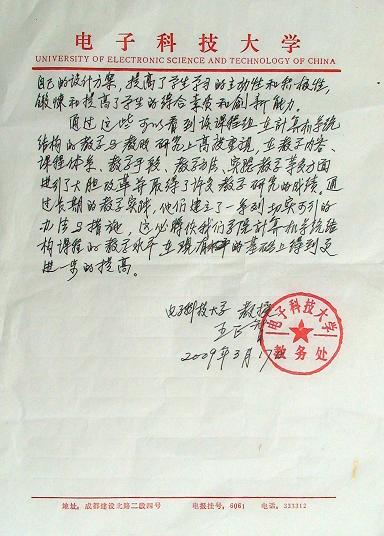 电子科技大学
UNIVERSITY OF ELECTRONIC SCIENCE AND TECHNOLOGY OF CHINA
自己的设计方案，提高了学生学习的主动性和积极性，
锻炼和提高了学生的综合素质和创新能力。
通过这些可以看到该课程组在计算机系统
结构的教学与教改研究上高度重视，在教学内容、
课程体系、教学手段、教学方法、实验教学等方面
进行了大胆改革并取得了许多教学研究的成绩。通
过长期的教学实践，他们建立了一系列切实可行的
办法与措施，这必将使我们学院计算机系统结
构课程的教学水平在现有的基础上得到更
进一步的提高。
电子科技大学 教授
王正
2009年3月17日
电子科技大学
教务处
地址：成都建设北路二段四号 电报挂号：6061 电话：333312